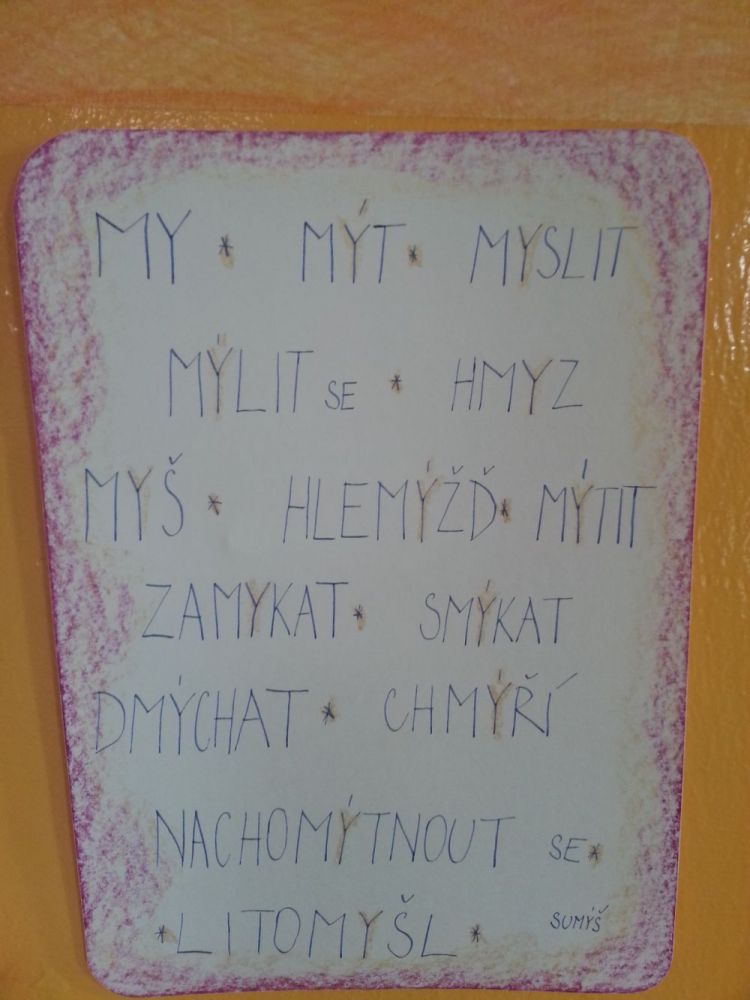 MY * MÝT * MYSLIT
MÝLIT SE * HMYZ
MYŠ * HLEMÝŽĎ * MÝTIT
ZAMYKAT * SMÝKAT
DMÝCHAT * CHMÝŘÍ
NACHOMÝTNOUT SE *
* LITOMYŠL * SUMÝŠ